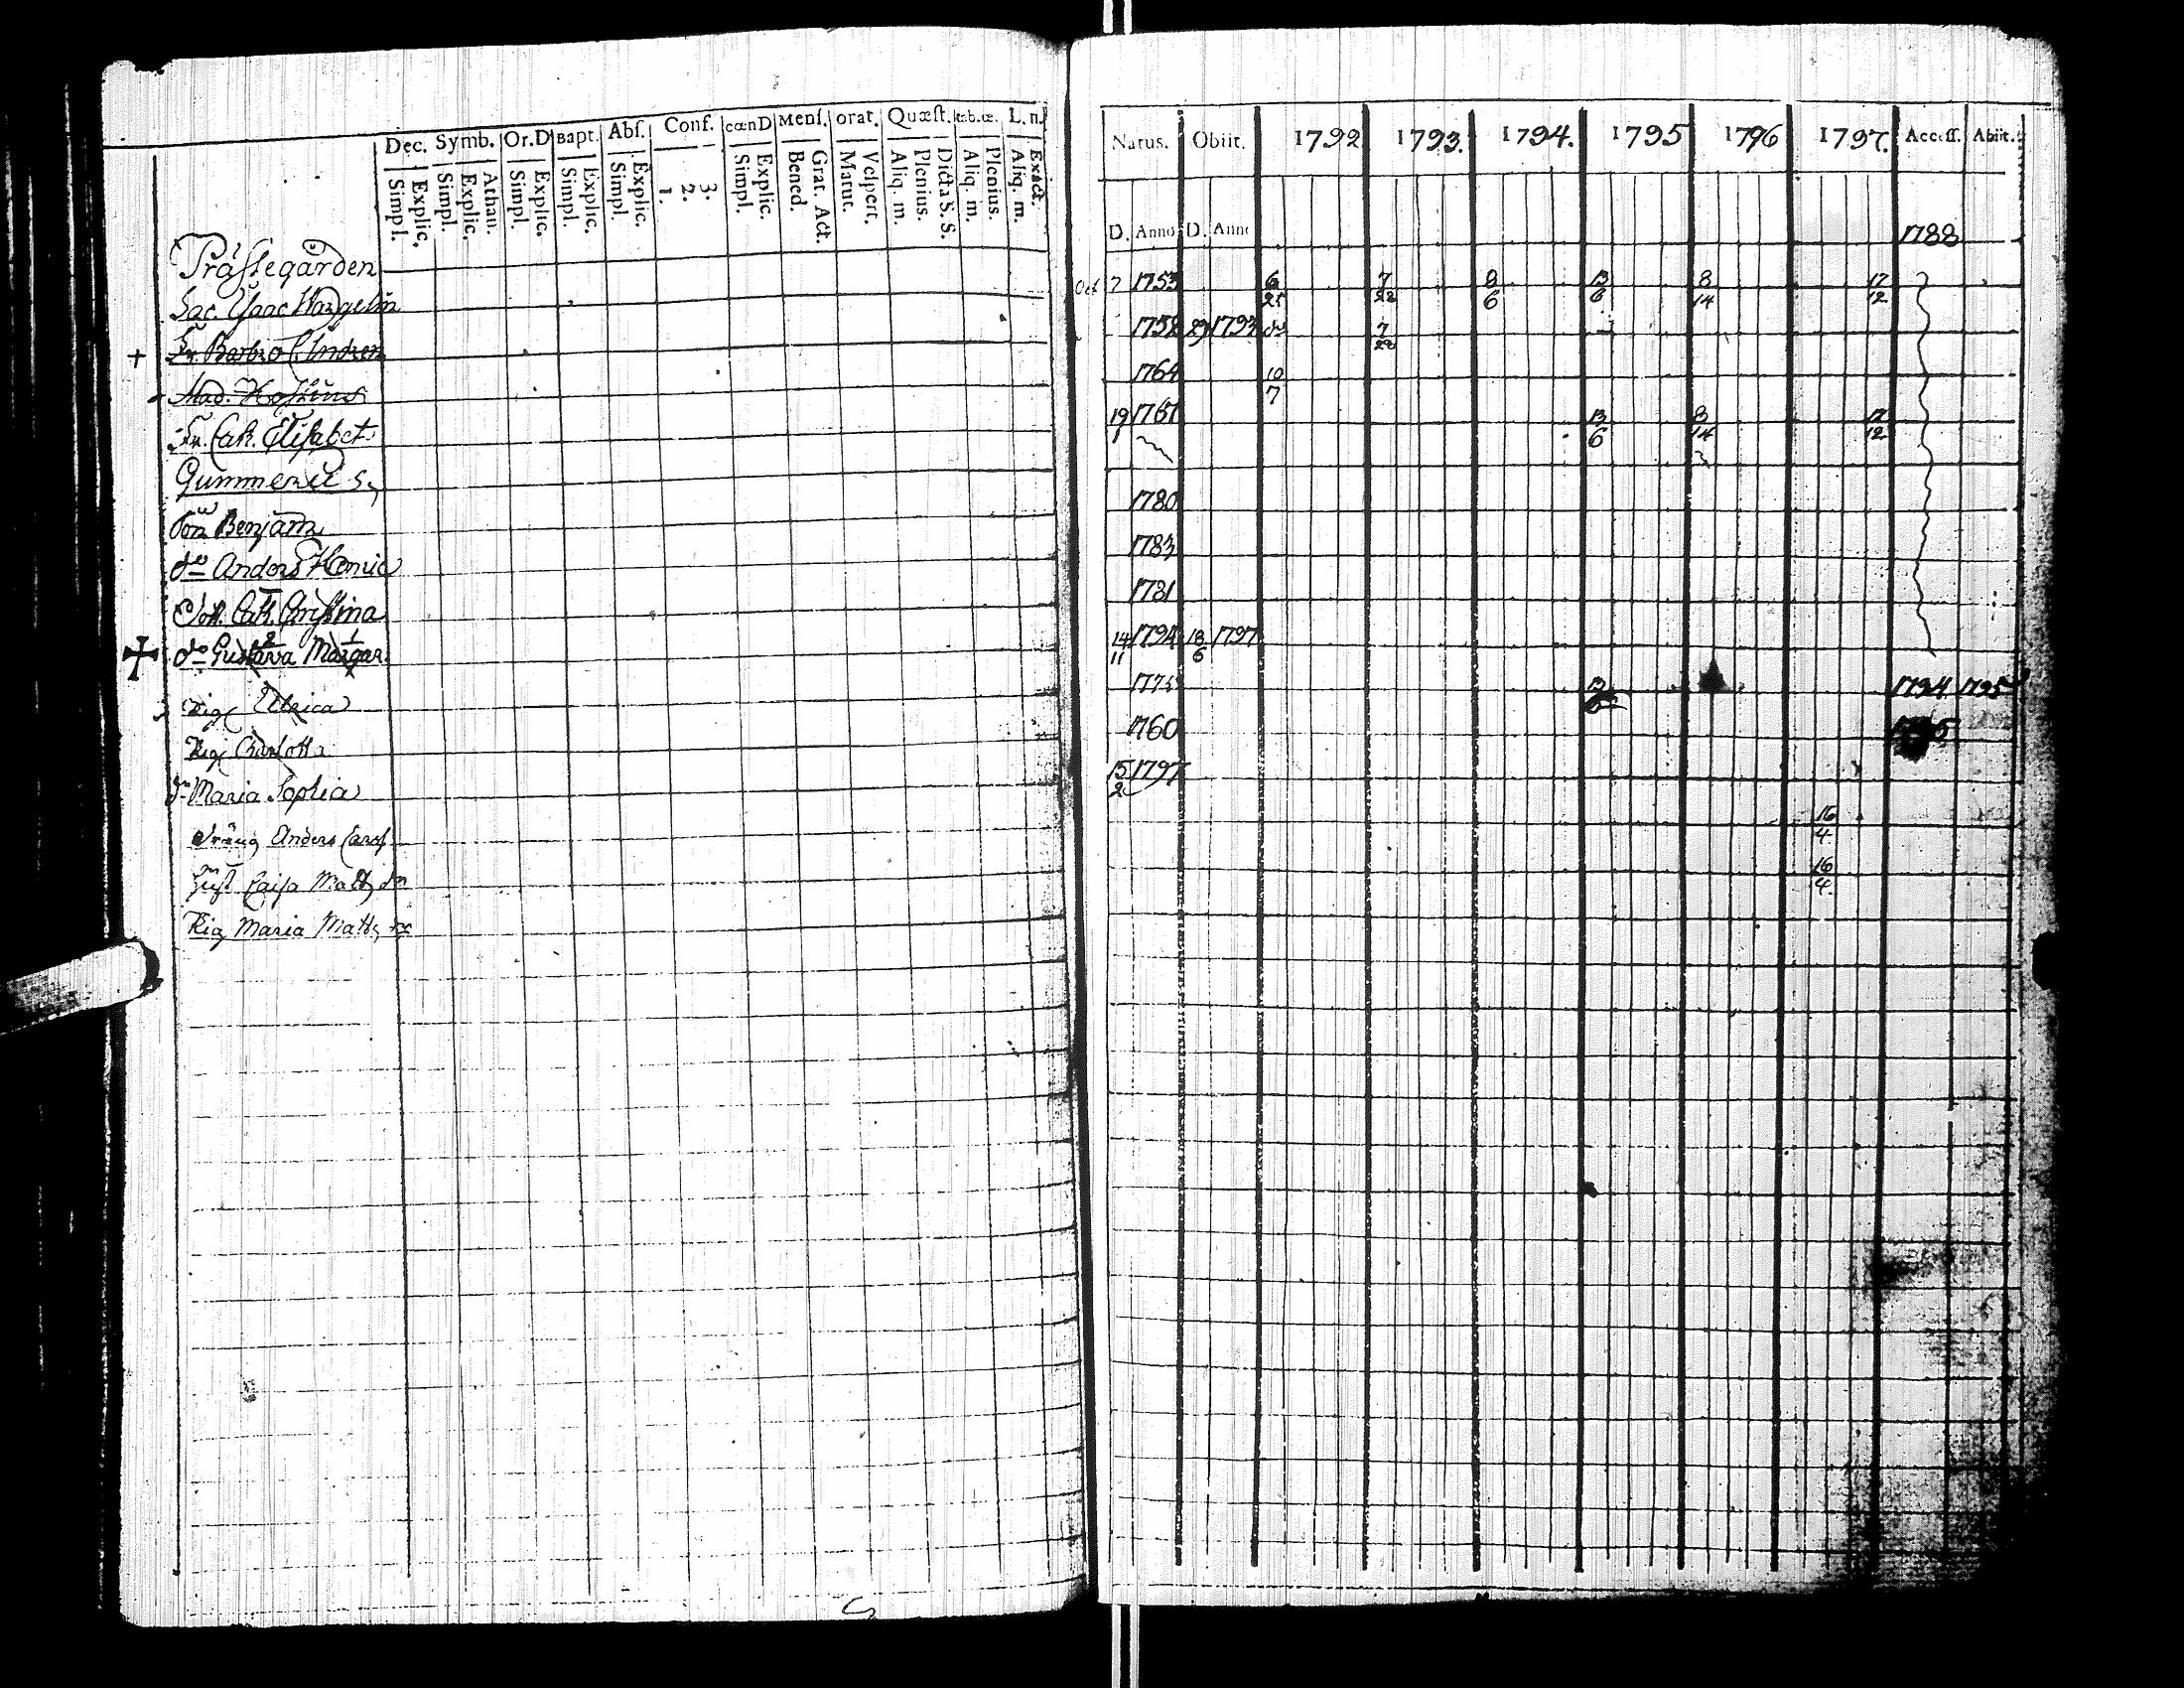 Dec. Symb. Or.D Bapt. Abſ. Conf. cœnD Menſ. orat. Quæſt. tab.œ. L. n.
Simpl. Explic. Simpl. Explic. Athan. Simpl. Explic. Simpl. Explic. Simpl. Explic. 1. 2. 3. Simpl. Explic. Bened. Grat. Act. Matut. Veſpert. Aliq. m. Plenius. Dicta S. S. Aliq. m. Plenius. Aliq. m. Exact.
Präſtegården
Sac. Iſaac
Fr. Barbro C.
Mad.
Fr. Cath. Eliſabet
Gummerus
Son Benjam
do Anders Henric
Dott. Cath. Chriſtina
do Guſtava Margar.
2 1
Pig. Ulrica
Pig. Charlotta
Maria Sophia
Dräng Anders
Caiſa Matts dr
Pig Maria Matts dr
Natus. Obiit. 1792 1793. 1794. 1795 1796 1797. Acceſſ. Abiit.
D. Anno D. Anno 1788
Oct 7 1753 6 7 8 13 8 17
25 28 6 6 14 12
1752 29 1793 do 7
28
1764 10
7
19 1767 13 8 17
1 6 14 12
1780
1783
1781
14 1794 18 1797
11 6
177 1794 1795
1760
15 1797
2
16
4.
16
4.